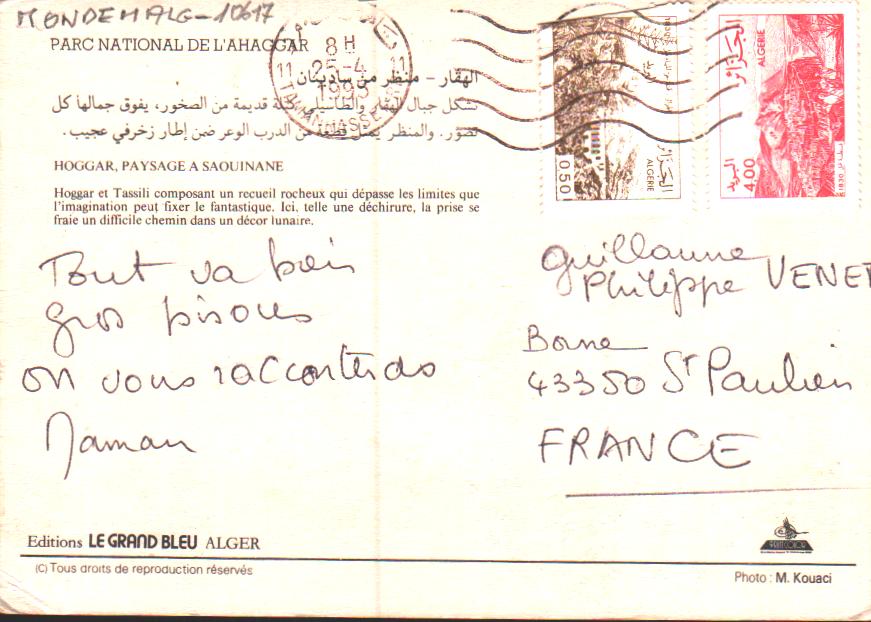 MONDEMALG-10617
PARC NATIONAL DE L'AHAGGAR
8H
11 25-4 11
TAMANRASSET
الهقار - منظر من ساوينان
تشكل جبال الهقار والطاسيلي كتلة قديمة من الصخور، يفوق جمالها كل
تصور. والمنظر يمثل قطعة من الدرب الوعر ضمن إطار زخرفي عجيب.
HOGGAR, PAYSAGE A SAOUINANE
Hoggar et Tassili composant un recueil rocheux qui dépasse les limites que
l'imagination peut fixer le fantastique. Ici, telle une déchirure, la prise se
fraie un difficile chemin dans un décor lunaire.
الجزائر
ALGERIE
0.50
الجزائر
ALGERIE
البريد
4.00
Tout va bien
gros bisous
on vous racontera
Maman
Guillaume
Philippe VENET
Borne
43350 St Paulien
FRANCE
Editions LE GRAND BLEU ALGER
(C) Tous droits de reproduction réservés
Photo : M. Kouaci